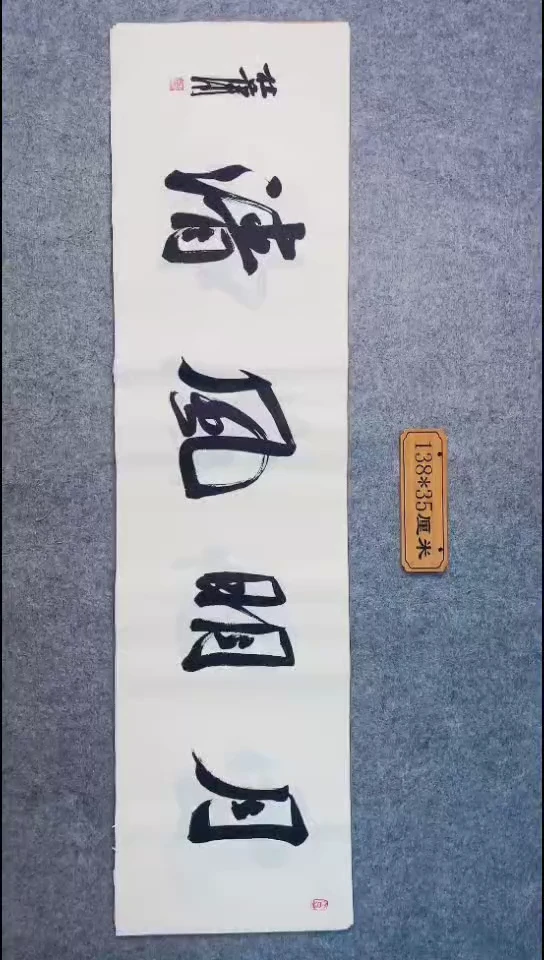 清風明月
138*35厘米